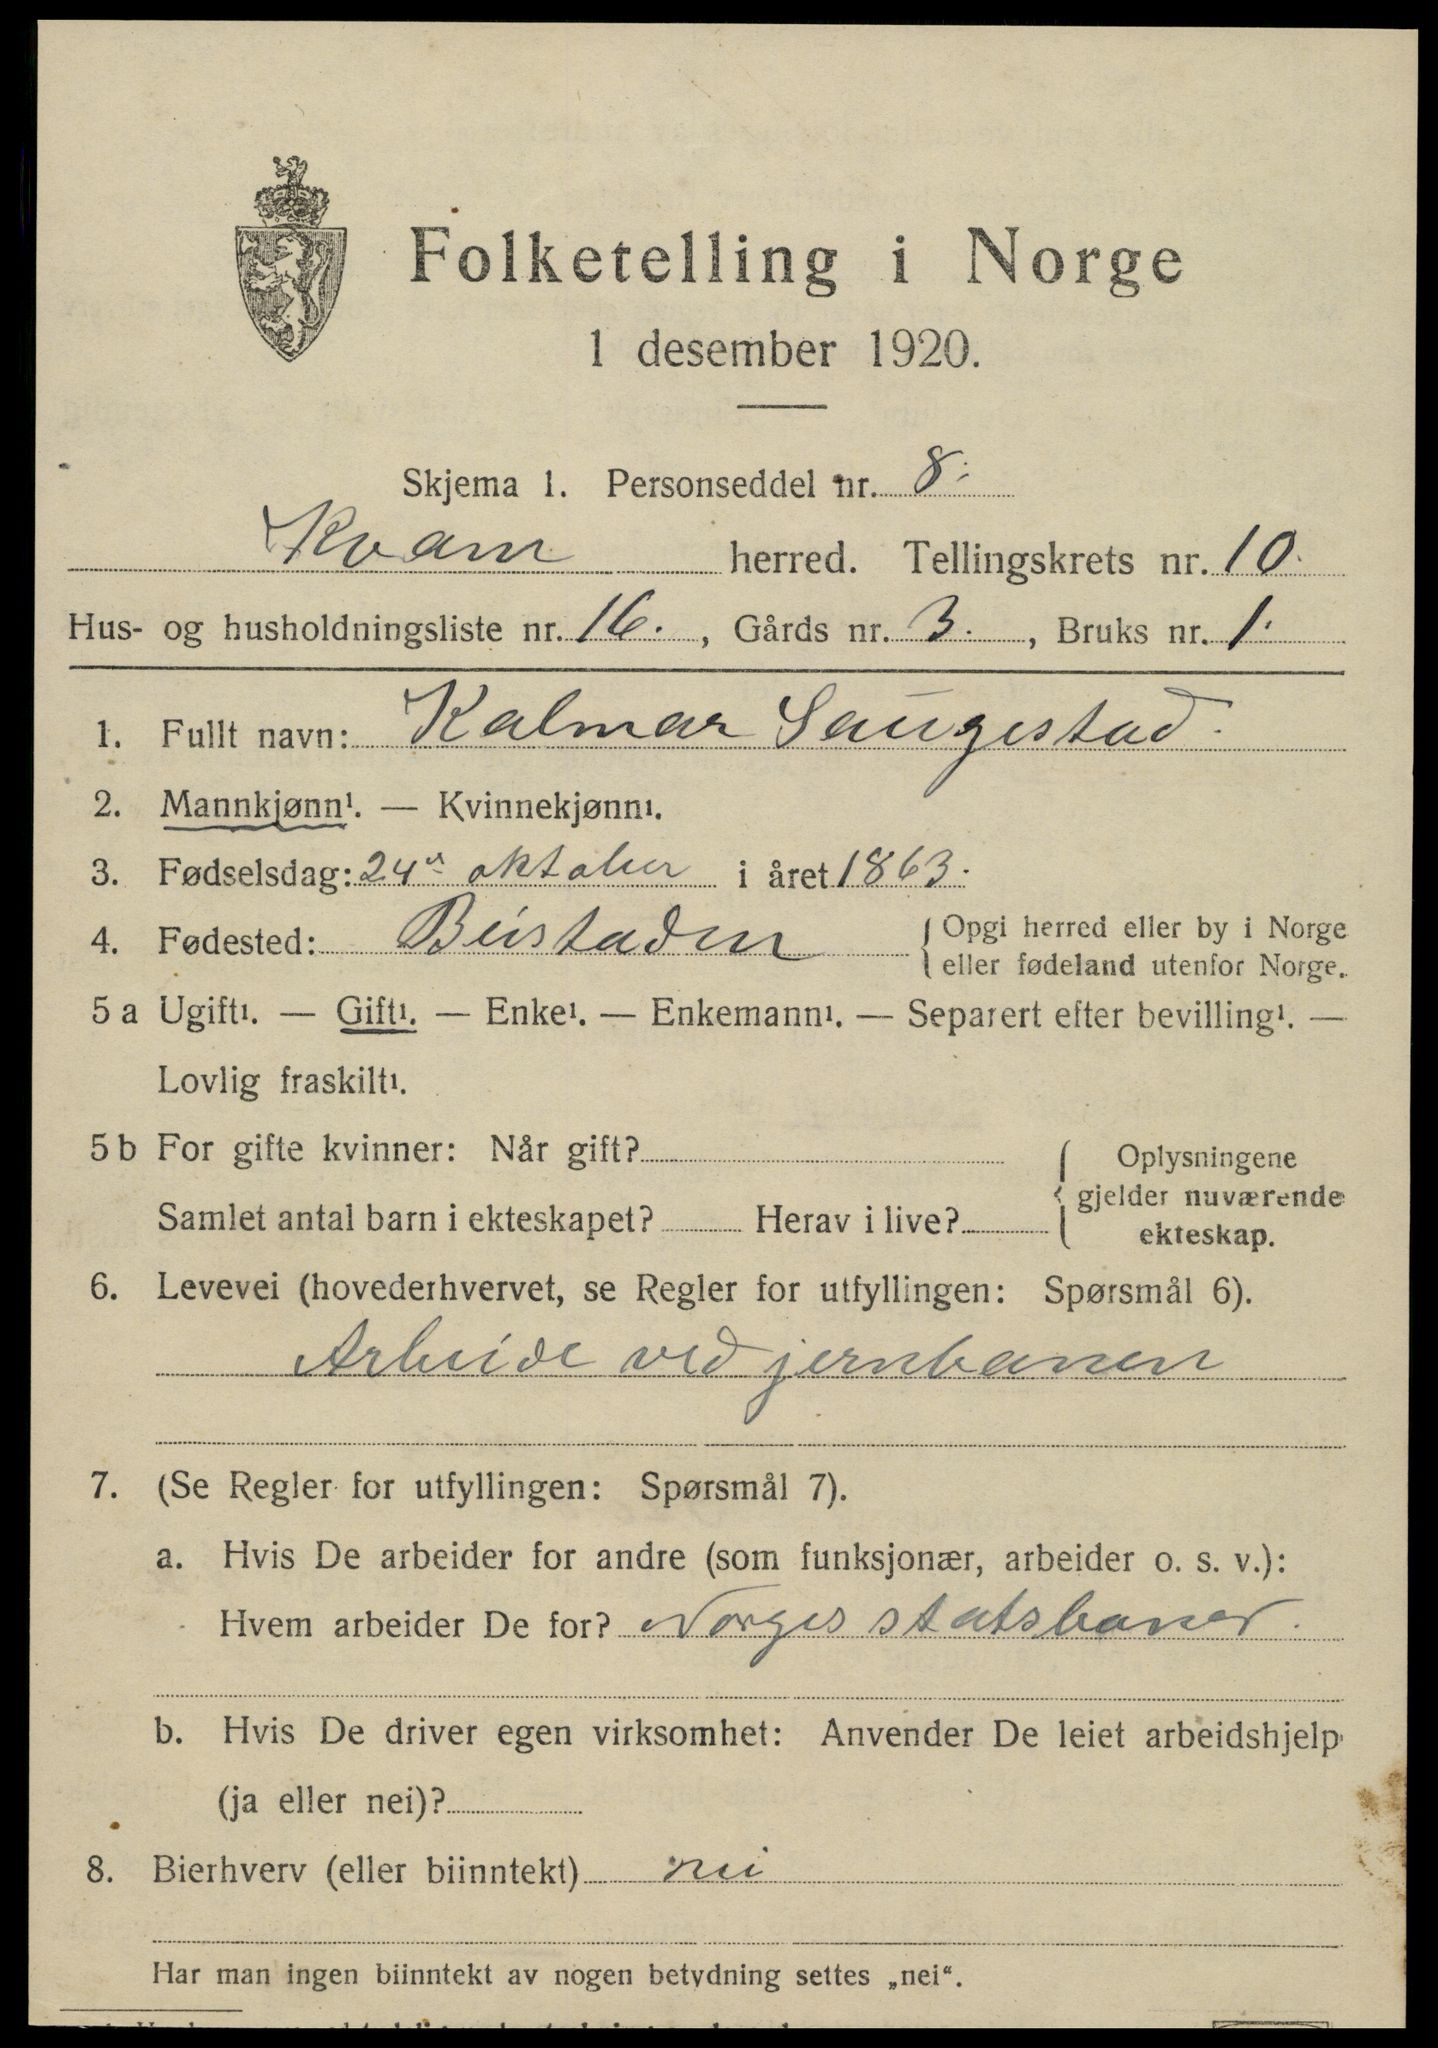 Folketelling i Norge
1 desember 1920.
Skjema 1. Personseddel nr. 8.
Kvam herred. Tellingskrets nr. 10.
Hus- og husholdningsliste nr. 16. , Gårds nr. 3. , Bruks nr. 1.
1. Fullt navn: Kalmar Saugestad.
2. Mannkjønn¹. — Kvinnekjønn¹.
3. Fødselsdag: 24de oktober i året 1863.
4. Fødested: Beistaden { Opgi herred eller by i Norge
eller fødeland utenfor Norge.
5 a Ugift¹. — Gift¹. — Enke¹. — Enkemann¹. — Separert efter bevilling¹. —
Lovlig fraskilt¹.
5 b For gifte kvinner: Når gift? { Oplysningene
gjelder nuværende
Samlet antal barn i ekteskapet? Herav i live?
ekteskap.
6. Levevei (hovederhvervet, se Regler for utfyllingen: Spørsmål 6).
Arbeide ved jernbanen
7. (Se Regler for utfyllingen: Spørsmål 7).
a. Hvis De arbeider for andre (som funksjonær, arbeider o. s. v.):
Hvem arbeider De for? Norges statsbaner.
b. Hvis De driver egen virksomhet: Anvender De leiet arbeidshjelp
(ja eller nei)?
8. Bierhverv (eller biinntekt) nei
Har man ingen biinntekt av nogen betydning settes „nei“.